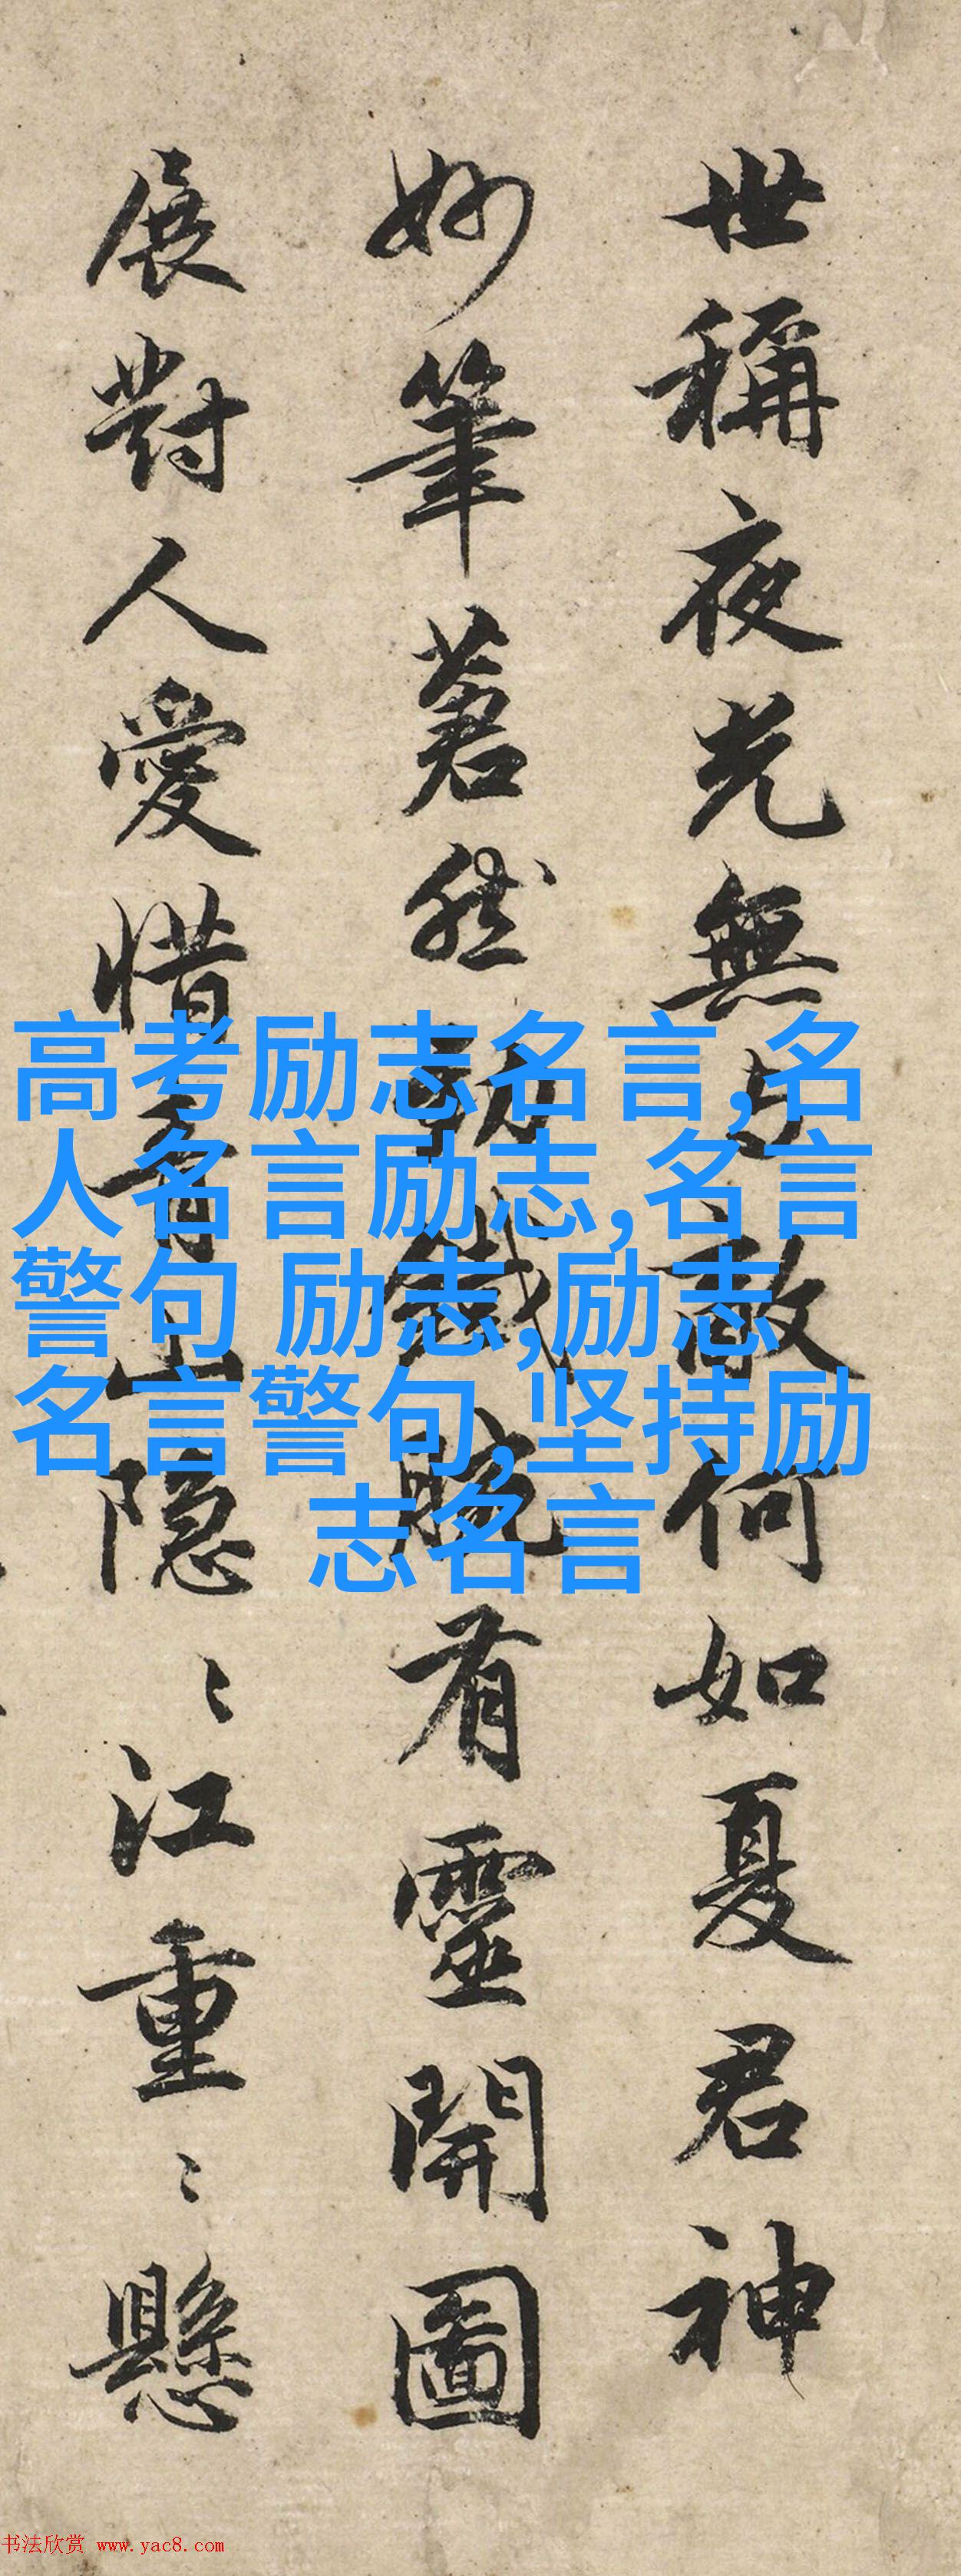 世稱夜光無与敵何如夏君神
妙筆蒼然勁鐵腕有靈開圖
展對人愛惜青山隐〻江重〻懸
高考励志名言,名
人名言励志,名言
警句 励志,励志
名言警句,坚持励
志名言
书法欣赏 www.yac8.com